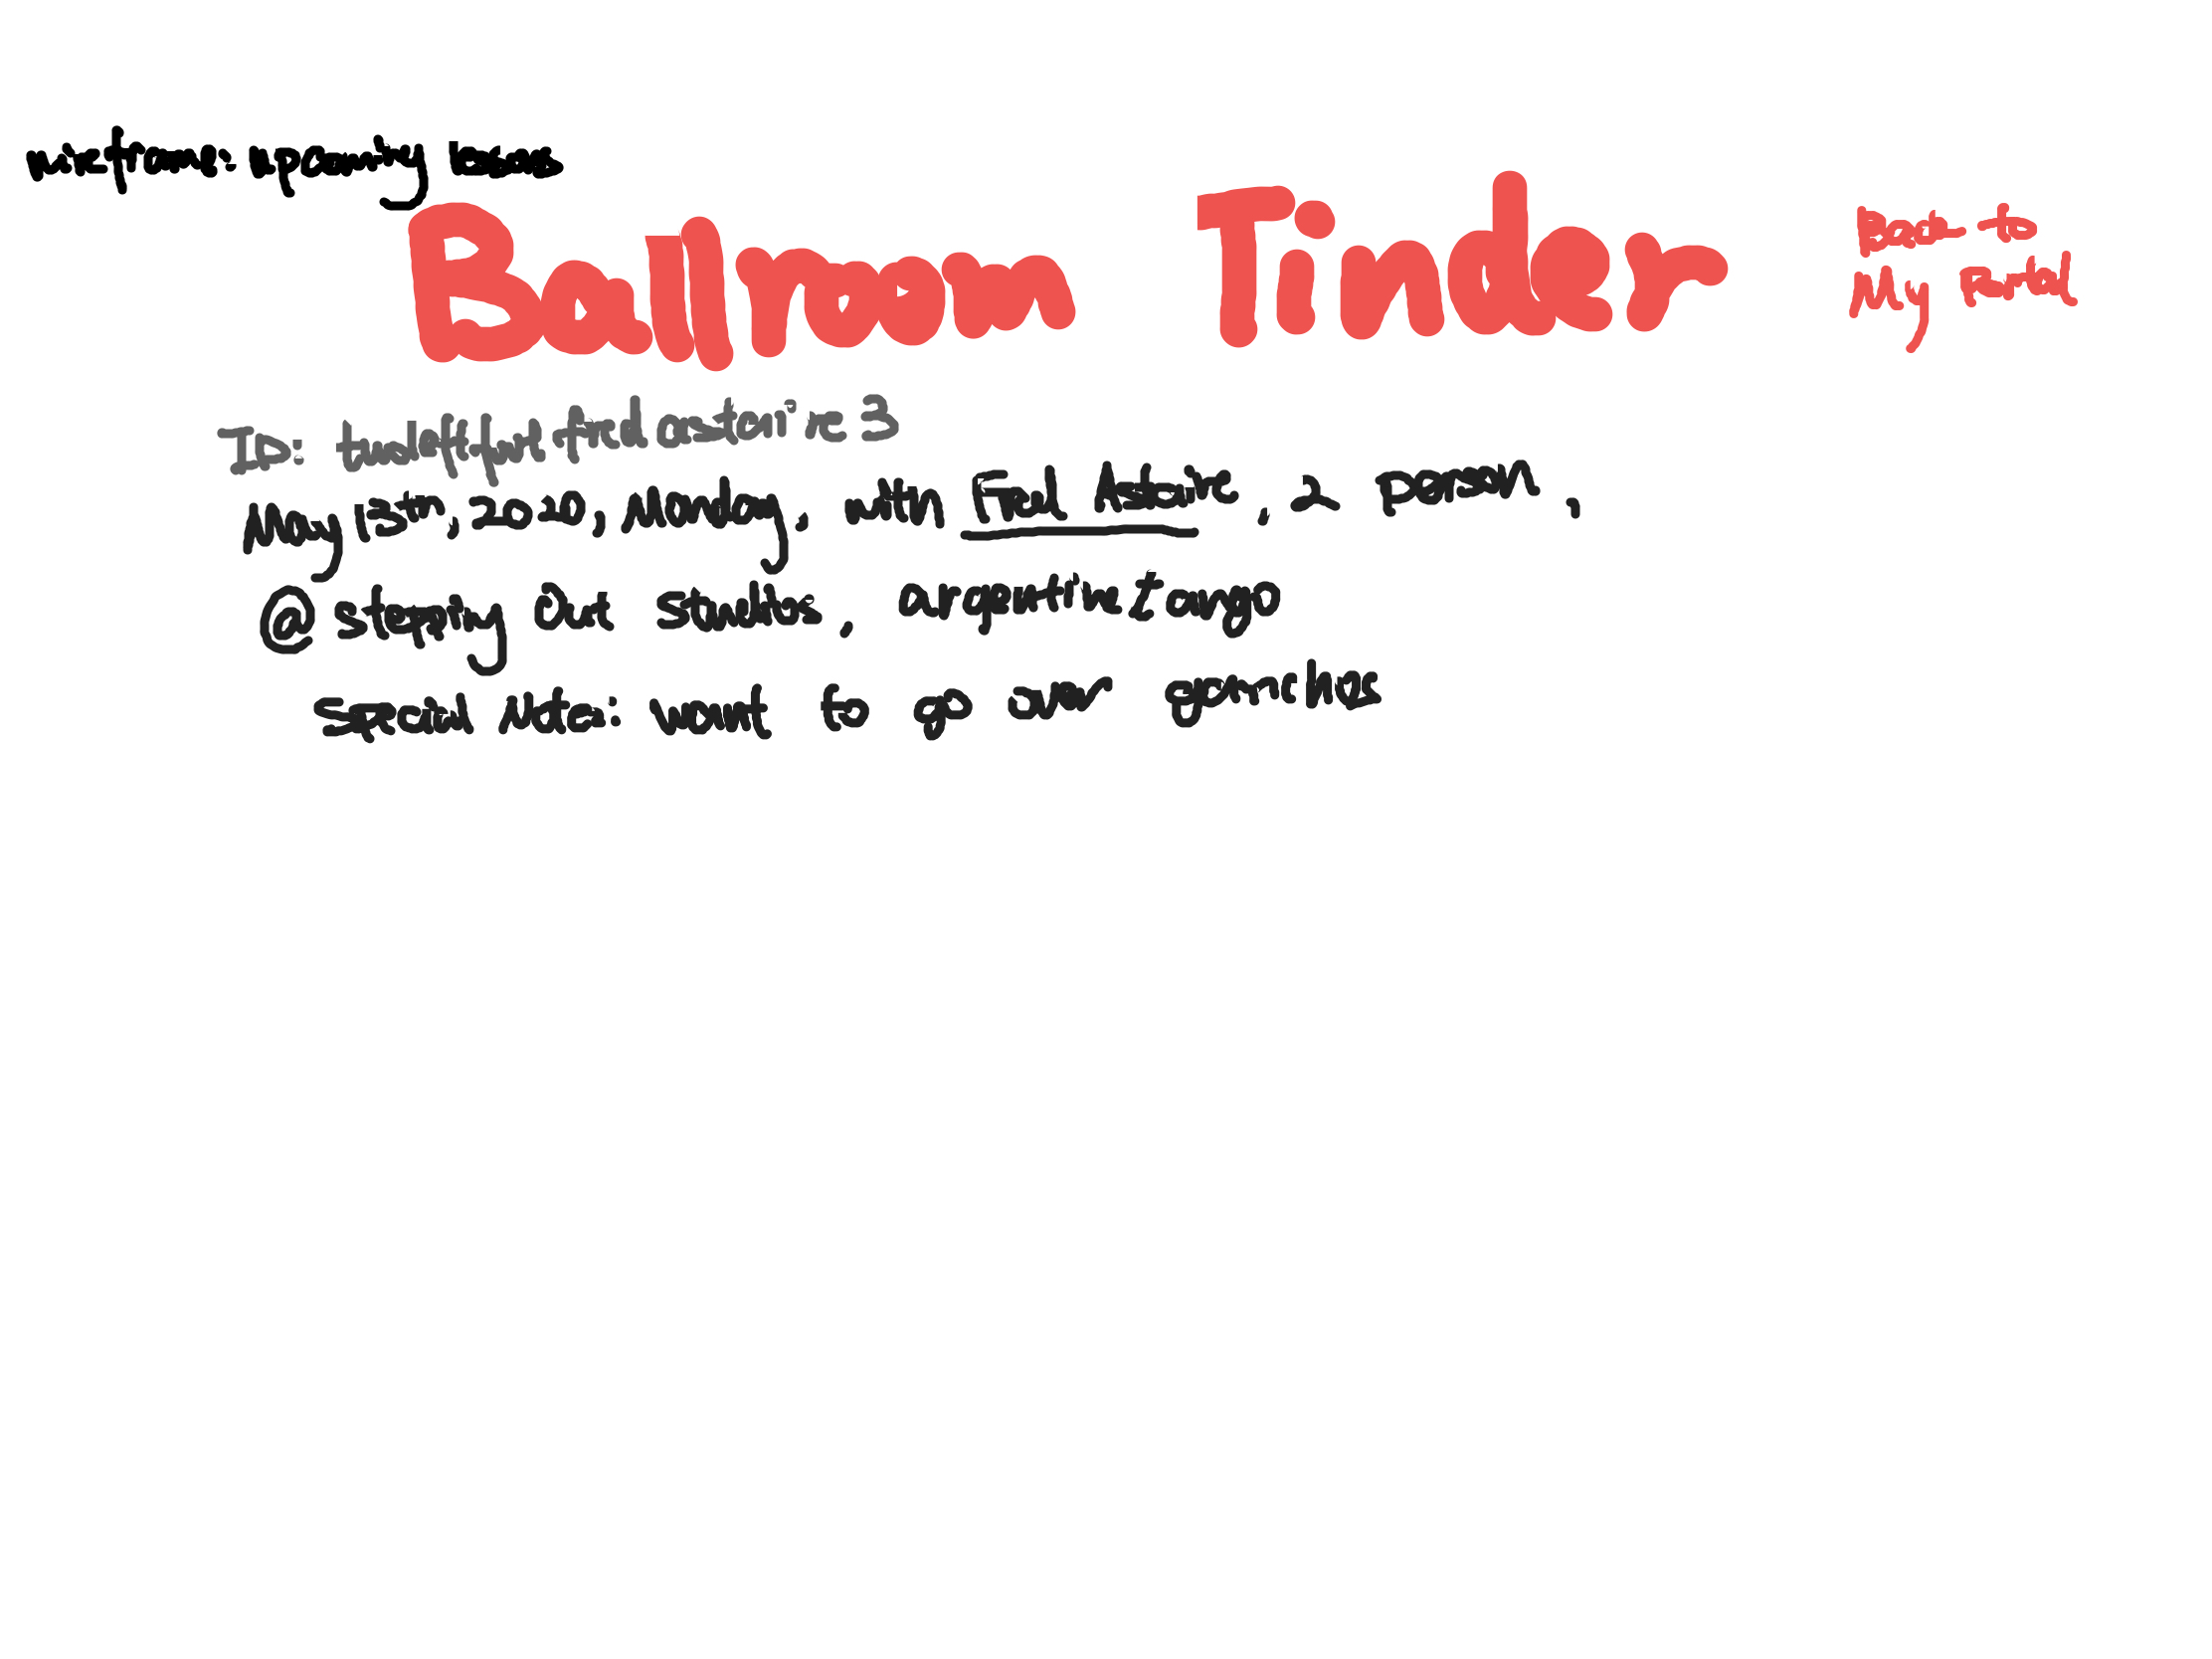 wireframe: upcoming lessons
Ballroom Tinder
Back to
My Portal
ID: fredastaire3
May 13th, 2021, Monday, with Fred Astaire, in person,
@ stepping out studios, argentine tango
special Notes: want to go over ganchos